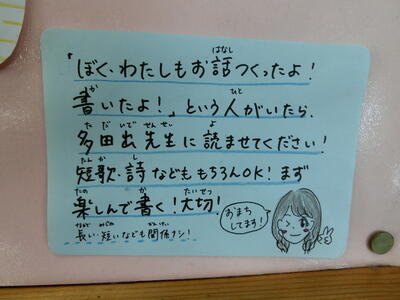 「ぼく・わたしもお話つくったよ！
書いたよ！」という人がいたら、
多田出先生に読ませてください！
短歌・詩などももちろんOK！まず
楽しんで書く！大切！
長い・短いなども関係ナシ！
おまち
してます！